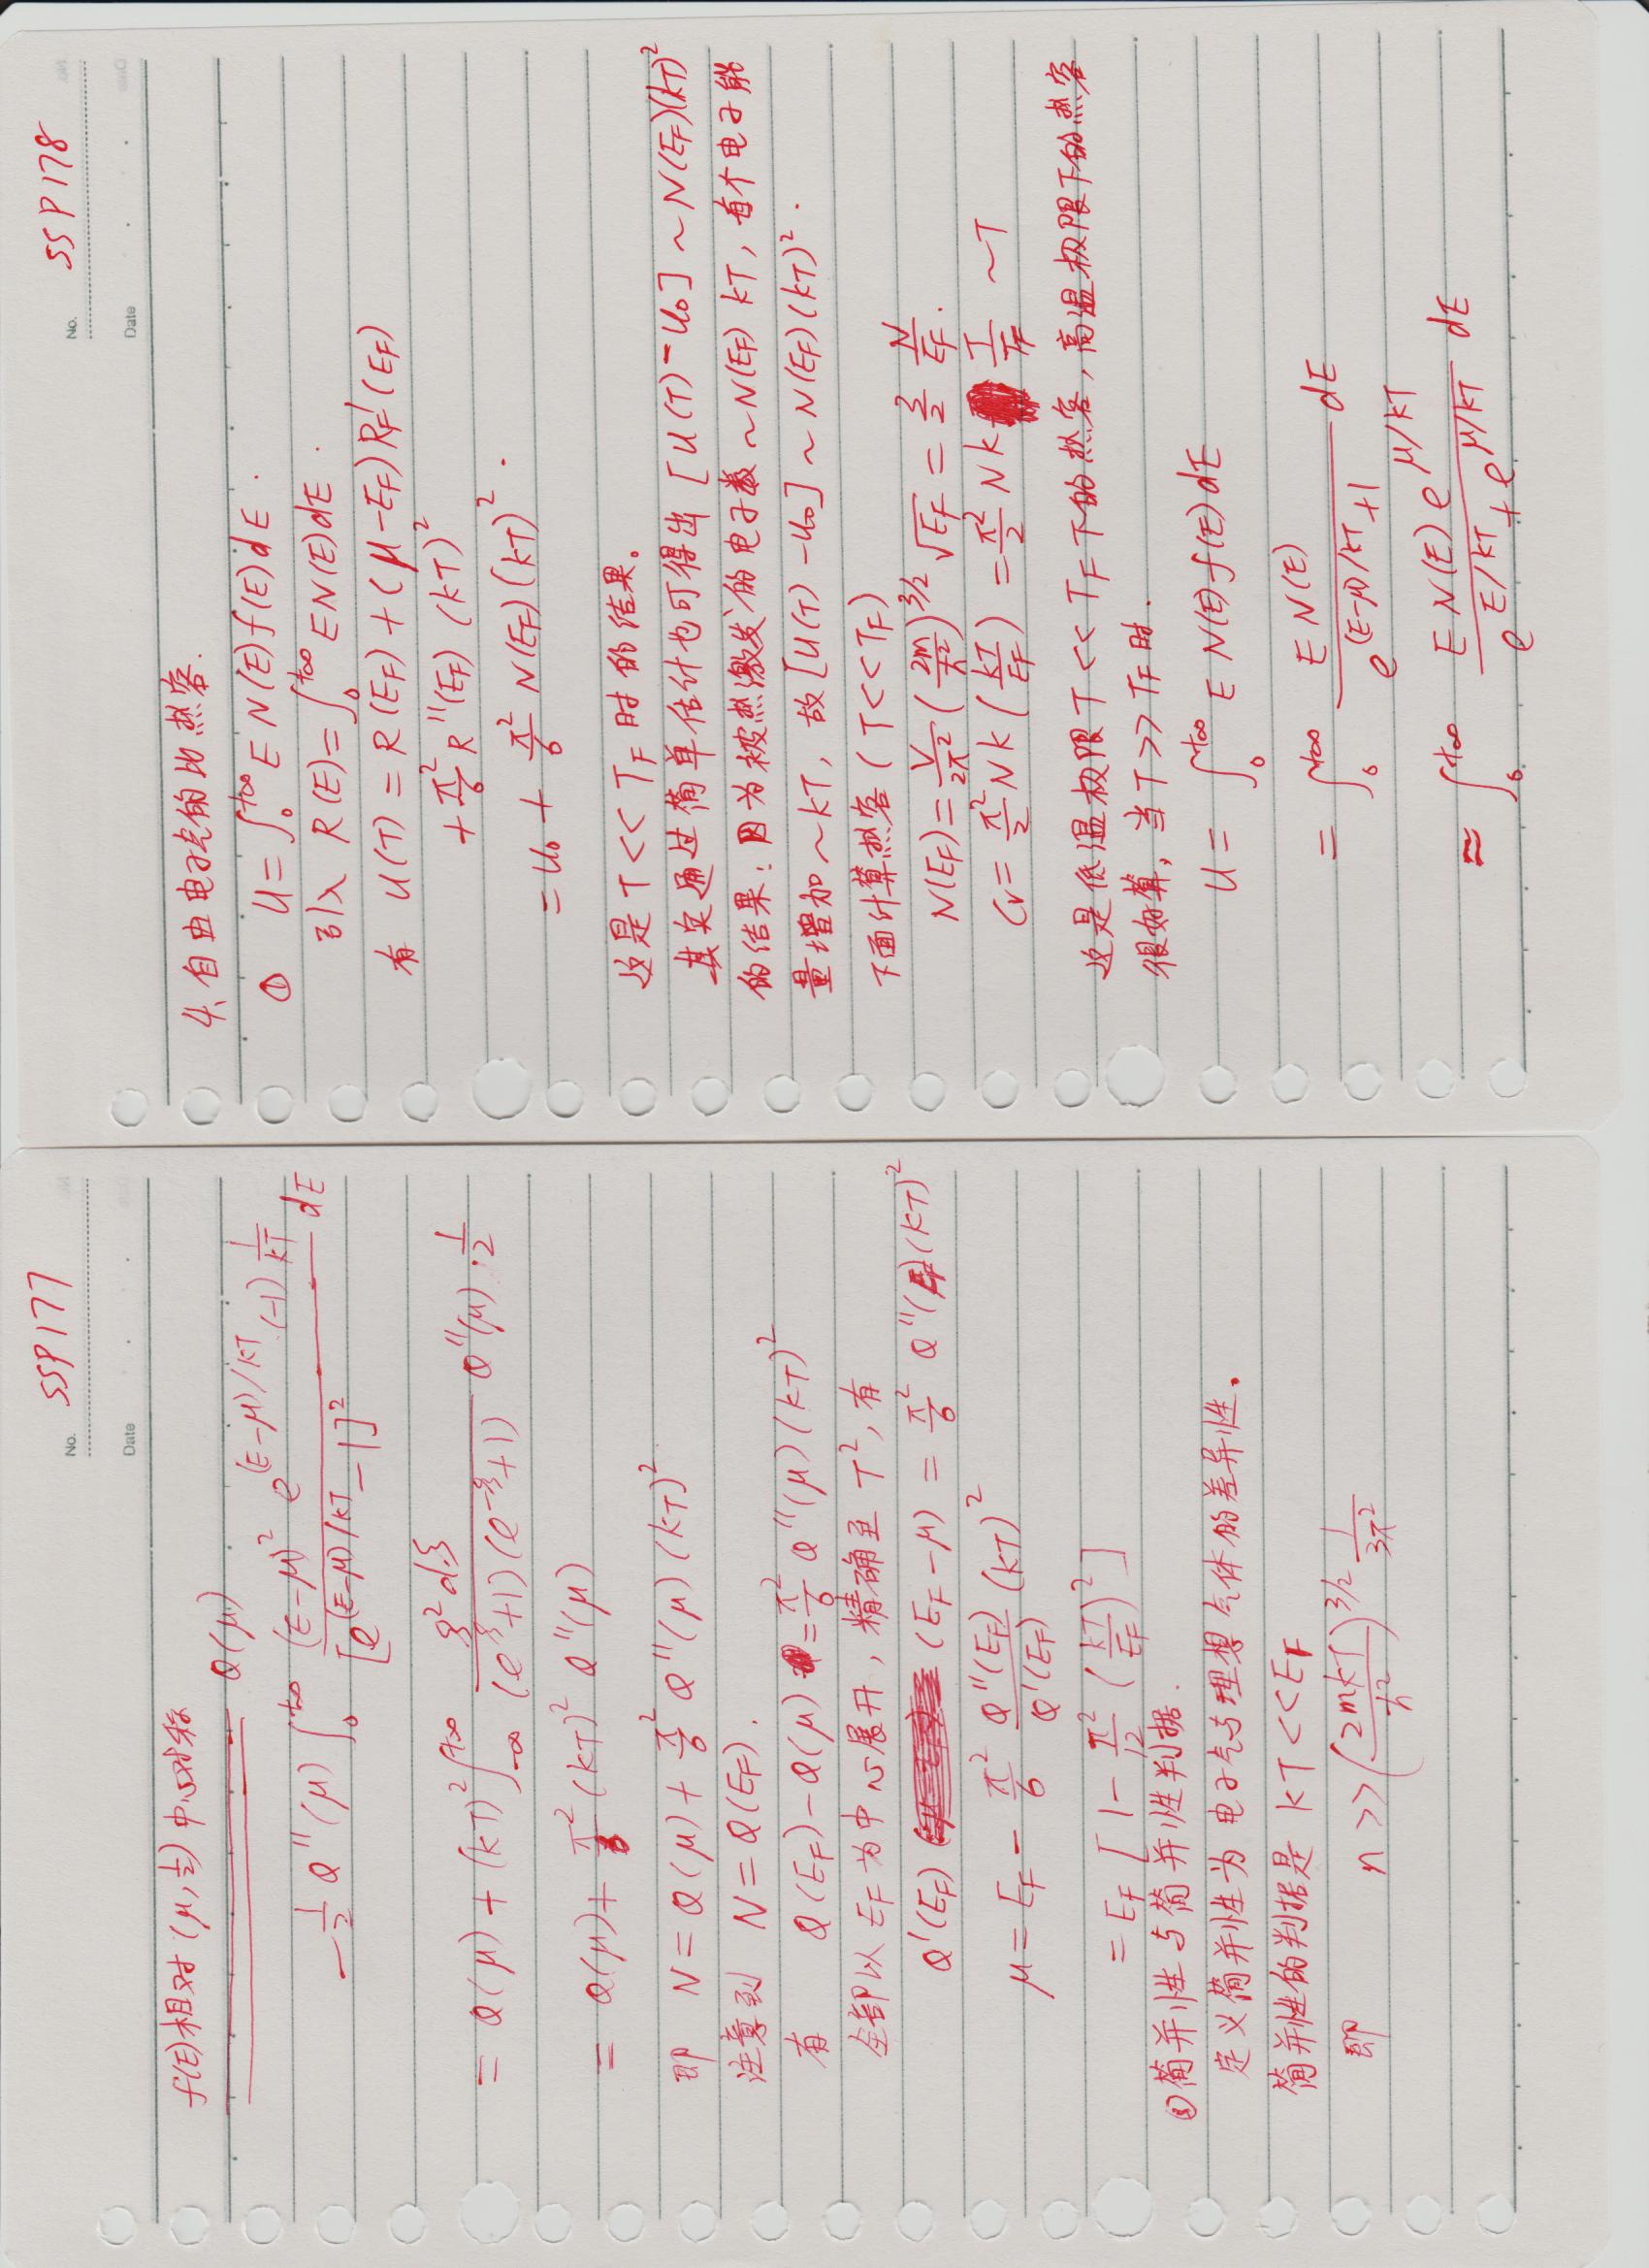 No. SSP177
Date
f(E)相对(μ,1/2)中心对称
Q(μ)
-1/2 Q''(μ) ∫_0^{+∞} \frac{(E-μ)^2 e^{(E-μ)/kT} ·(-1) \frac{1}{kT}}{[e^{(E-μ)/kT}-1]^2} dE
= Q(μ) + (kT)^2 ∫_{-∞}^{+∞} \frac{ξ^2 dξ}{(e^ξ+1)(e^{-ξ}+1)} Q''(μ)·1/2
= Q(μ)+ \frac{π^2}{6} (kT)^2 Q''(μ)
即 N=Q(μ)+ \frac{π^2}{6} Q''(μ)(kT)^2
注意到 N=Q(E_F).
有 Q(E_F)-Q(μ) = \frac{π^2}{6} Q''(μ)(kT)^2
全部以E_F为中心展开,精确至T^2,有
Q'(E_F) (E_F-μ) = \frac{π^2}{6} Q''(E_F)(kT)^2
μ= E_F - \frac{π^2}{6} \frac{Q''(E_F)}{Q'(E_F)} (kT)^2
= E_F [1- \frac{π^2}{12} (\frac{kT}{E_F})^2]
简并性与简并性判据.
定义简并性为电子气与理想气体的差异性。
简并性的判据是 kT<<E_F
即 n>>(\frac{2mkT}{ħ^2})^{3/2} \frac{1}{3π^2}
No. SSP178
Date
4、自由电子气的比热容.
① U=∫_0^{+∞} E N(E)f(E)dE.
引入 R(E)=∫_0^{+∞} EN(E)dE.
有 U(T)=R(E_F)+(μ-E_F)R_F'(E_F)
+\frac{π^2}{6} R''(E_F) (kT)^2
=U_0 + \frac{π^2}{6} N(E_F)(kT)^2.
这是T<<T_F时的结果。
其实通过简单估计也可得出[U(T)-U_0]~N(E_F)(kT)^2
的结果:因为被热激发的电子数~N(E_F) kT,每个电子能
量增加~kT,故[U(T)-U_0]~N(E_F)(kT)^2.
下面计算热容(T<<T_F)
N(E_F)=\frac{V}{2π^2}(\frac{2m}{ħ^2})^{3/2} √E_F = \frac{3}{2} \frac{N}{E_F}.
C_V= \frac{π^2}{2} Nk (\frac{kT}{E_F}) = \frac{π^2}{2} Nk \frac{T}{T_F} ~T
这是低温极限T<<T_F下的热容,高温极限下的热容
很好算,当T>>T_F时.
U= ∫_0^{+∞} E N(E) f(E)dE
= ∫_0^{+∞} \frac{E N(E)}{e^{(E-μ)/kT}+1} dE
≈ ∫_0^{+∞} \frac{E N(E) e^{μ/kT}}{e^{E/kT}+e^{μ/kT}} dE